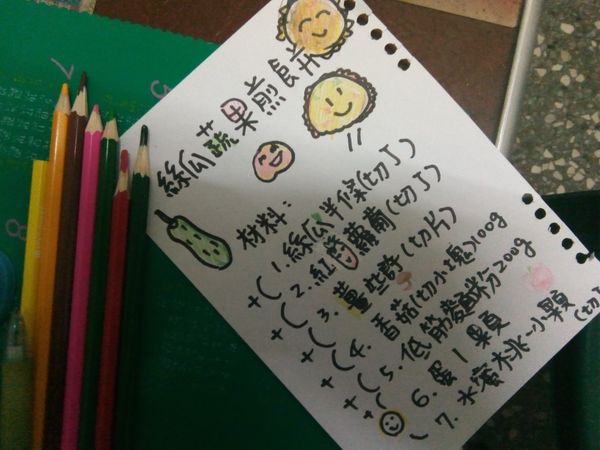 絲瓜蔬果煎餅
材料:
1. 絲瓜半條(切丁)
2. 紅蘿蔔(切丁)
3. 薑些許(切片)
4. 香菇(切小塊)100g
5. 低筋麵粉200g
6. 蛋1顆
7. 水蜜桃一小顆(切